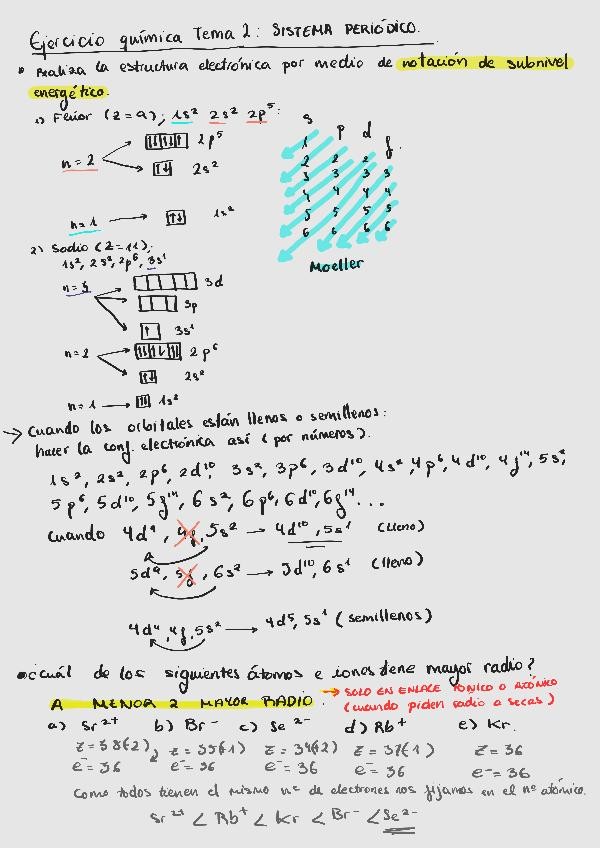 Ejercicio química Tema 2: SISTEMA PERIÓDICO.
Realiza la estructura electrónica por medio de notación de subnivel
energético.
1) Flúor (z=9); 1s² 2s² 2p⁵:
n=2
2p⁵
2s²
n=1
1s²
s p d f
1
2 2 2
3 3 3 3
4 4 4 4
5 5 5 5
6 6 6 6
Moeller
2) Sodio (Z=11);
1s², 2s², 2p⁶, 3s¹
n=3
3d
3p
3s¹
n=2
2p⁶
2s²
n=1
1s²
→ Cuando los orbitales están llenos o semillenos:
hacer la conf. electrónica así (por números).
1s², 2s², 2p⁶, 2d¹⁰, 3s², 3p⁶, 3d¹⁰, 4s², 4p⁶, 4d¹⁰, 4f¹⁴, 5s²,
5p⁶, 5d¹⁰, 5f¹⁴, 6s², 6p⁶, 6d¹⁰, 6f¹⁴...
Cuando 4d⁹, 4f, 5s² → 4d¹⁰, 5s¹ (lleno)
5d⁹, 5f, 6s² → 5d¹⁰, 6s¹ (lleno)
4d⁴, 4f, 5s² → 4d⁵, 5s¹ (semillenos)
¿cuál de los siguientes átomos e iones tiene mayor radio?
A MENOR Z MAYOR RADIO. → SOLO EN ENLACE IÓNICO O ATÓMICO
(cuando piden radio a secas)
a) Sr²⁺ b) Br⁻ c) Se²⁻ d) Rb⁺ e) Kr.
z=38(2) z=35(1) z=34(2) z=37(1) z=36
e⁻=36 e⁻=36 e⁻=36 e⁻=36 e⁻=36
Como todos tienen el mismo nº de electrones nos fijamos en el nº atómico.
Sr²⁺ < Rb⁺ < Kr < Br⁻ < Se²⁻